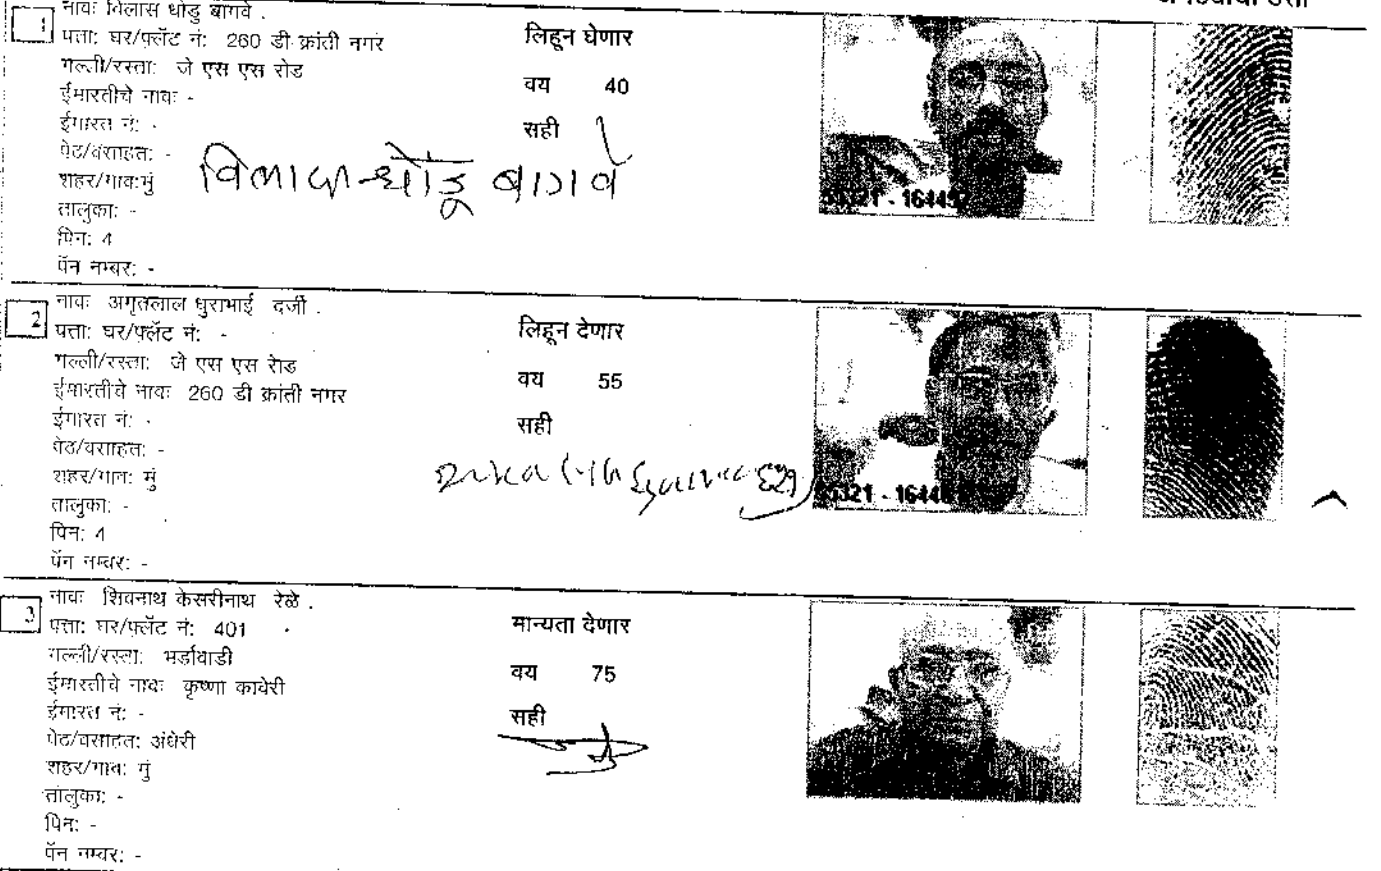 अंगठ्याचा ठसा
1
नावः विलास धोंडु बागवे .
पत्ता: घर/फ्लॅट नं: 260 डी क्रांती नगर
गल्ली/रस्ता: जे एस एस रोड
ईमारतीचे नावः -
ईमारत नं: -
पेठ/वसाहत: -
शहर/गाव:मुं
तालुका: -
पिन: 4
पॅन नम्बर: -
लिहून घेणार
वय 40
सही
विलास धोंडू बागवे
2
नावः अमृतलाल धुराभाई दर्जी .
पत्ता: घर/फ्लॅट नं: -
गल्ली/रस्ता: जे एस एस रोड
ईमारतीचे नावः 260 डी क्रांती नगर
ईमारत नं: -
पेठ/वसाहत: -
शहर/गाव: मुं
तालुका: -
पिन: 4
पॅन नम्बर: -
लिहून देणार
वय 55
सही
3
नावः शिवनाथ केसरीनाथ रेळे .
पत्ता: घर/फ्लॅट नं: 401
गल्ली/रस्ता: मर्डावाडी
ईमारतीचे नावः कृष्णा कावेरी
ईमारत नं: -
पेठ/वसाहत: अंधेरी
शहर/गाव: मुं
तालुका: -
पिन: -
पॅन नम्बर: -
मान्यता देणार
वय 75
सही